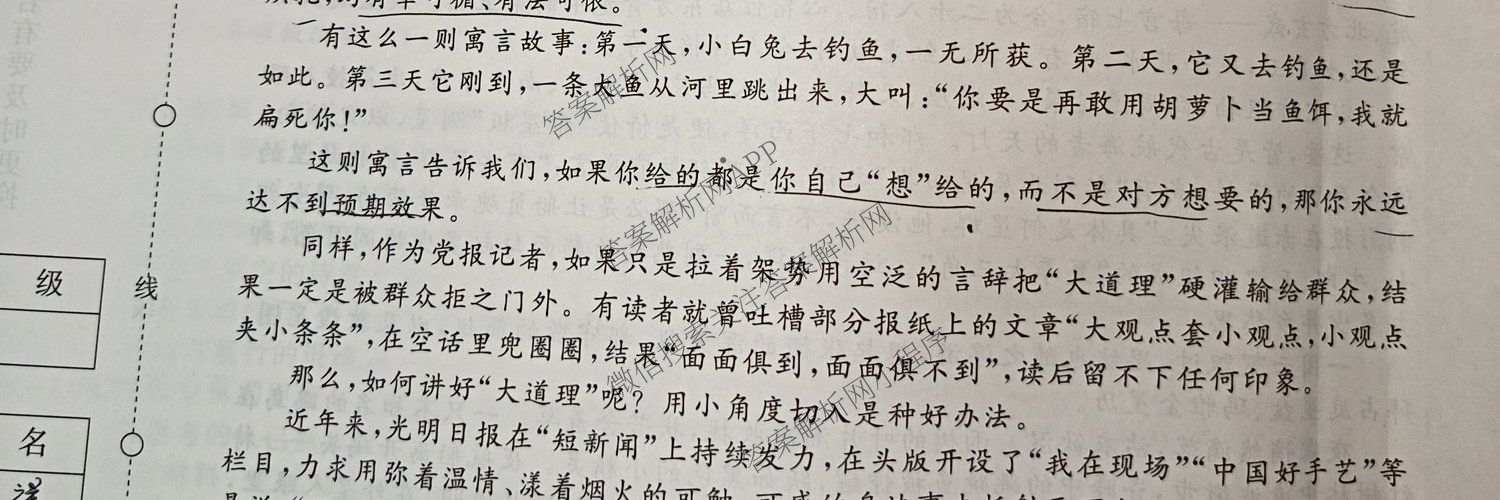 有章可循、有法可依。
有这么一则寓言故事:第一天,小白兔去钓鱼,一无所获。第二天,它又去钓鱼,还是
如此。第三天它刚到,一条大鱼从河里跳出来,大叫:“你要是再敢用胡萝卜当鱼饵,我就
扁死你!”
这则寓言告诉我们,如果你给的都是你自己“想”给的,而不是对方想要的,那你永远
达不到预期效果。
同样,作为党报记者,如果只是拉着架势用空泛的言辞把“大道理”硬灌输给群众,结
果一定是被群众拒之门外。有读者就曾吐槽部分报纸上的文章“大观点套小观点,小观点
夹小条条”,在空话里兜圈圈,结果“面面俱到,面面俱不到”,读后留不下任何印象。
那么,如何讲好“大道理”呢?用小角度切入是种好办法。
近年来,光明日报在“短新闻”上持续发力,在头版开设了“我在现场”“中国好手艺”等
栏目,力求用弥着温情、漾着烟火的可触、可感的
级
线
名
答案解析网
答案解析网APP
微信搜索关注答案解析网
答案解析网小程序